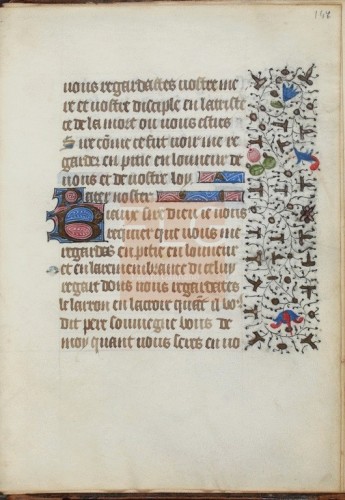 148
vous regardastes vostre me
re et vostre disciple en la triste
ce de la mort ou vous esties
Sire cõme ce fut voir me re
gardez en pitie en lonneur de
vous et de nostre loy
Pater noster
Biaux sire dieu ie vous
requier que vous me
regardes en pitie en lonneur
et en la remembrance di celuy
regart dont vous regardastes
le larron en la croix quãt il vo9
dit pere souviegne vous de
moy quant vous seres en vo